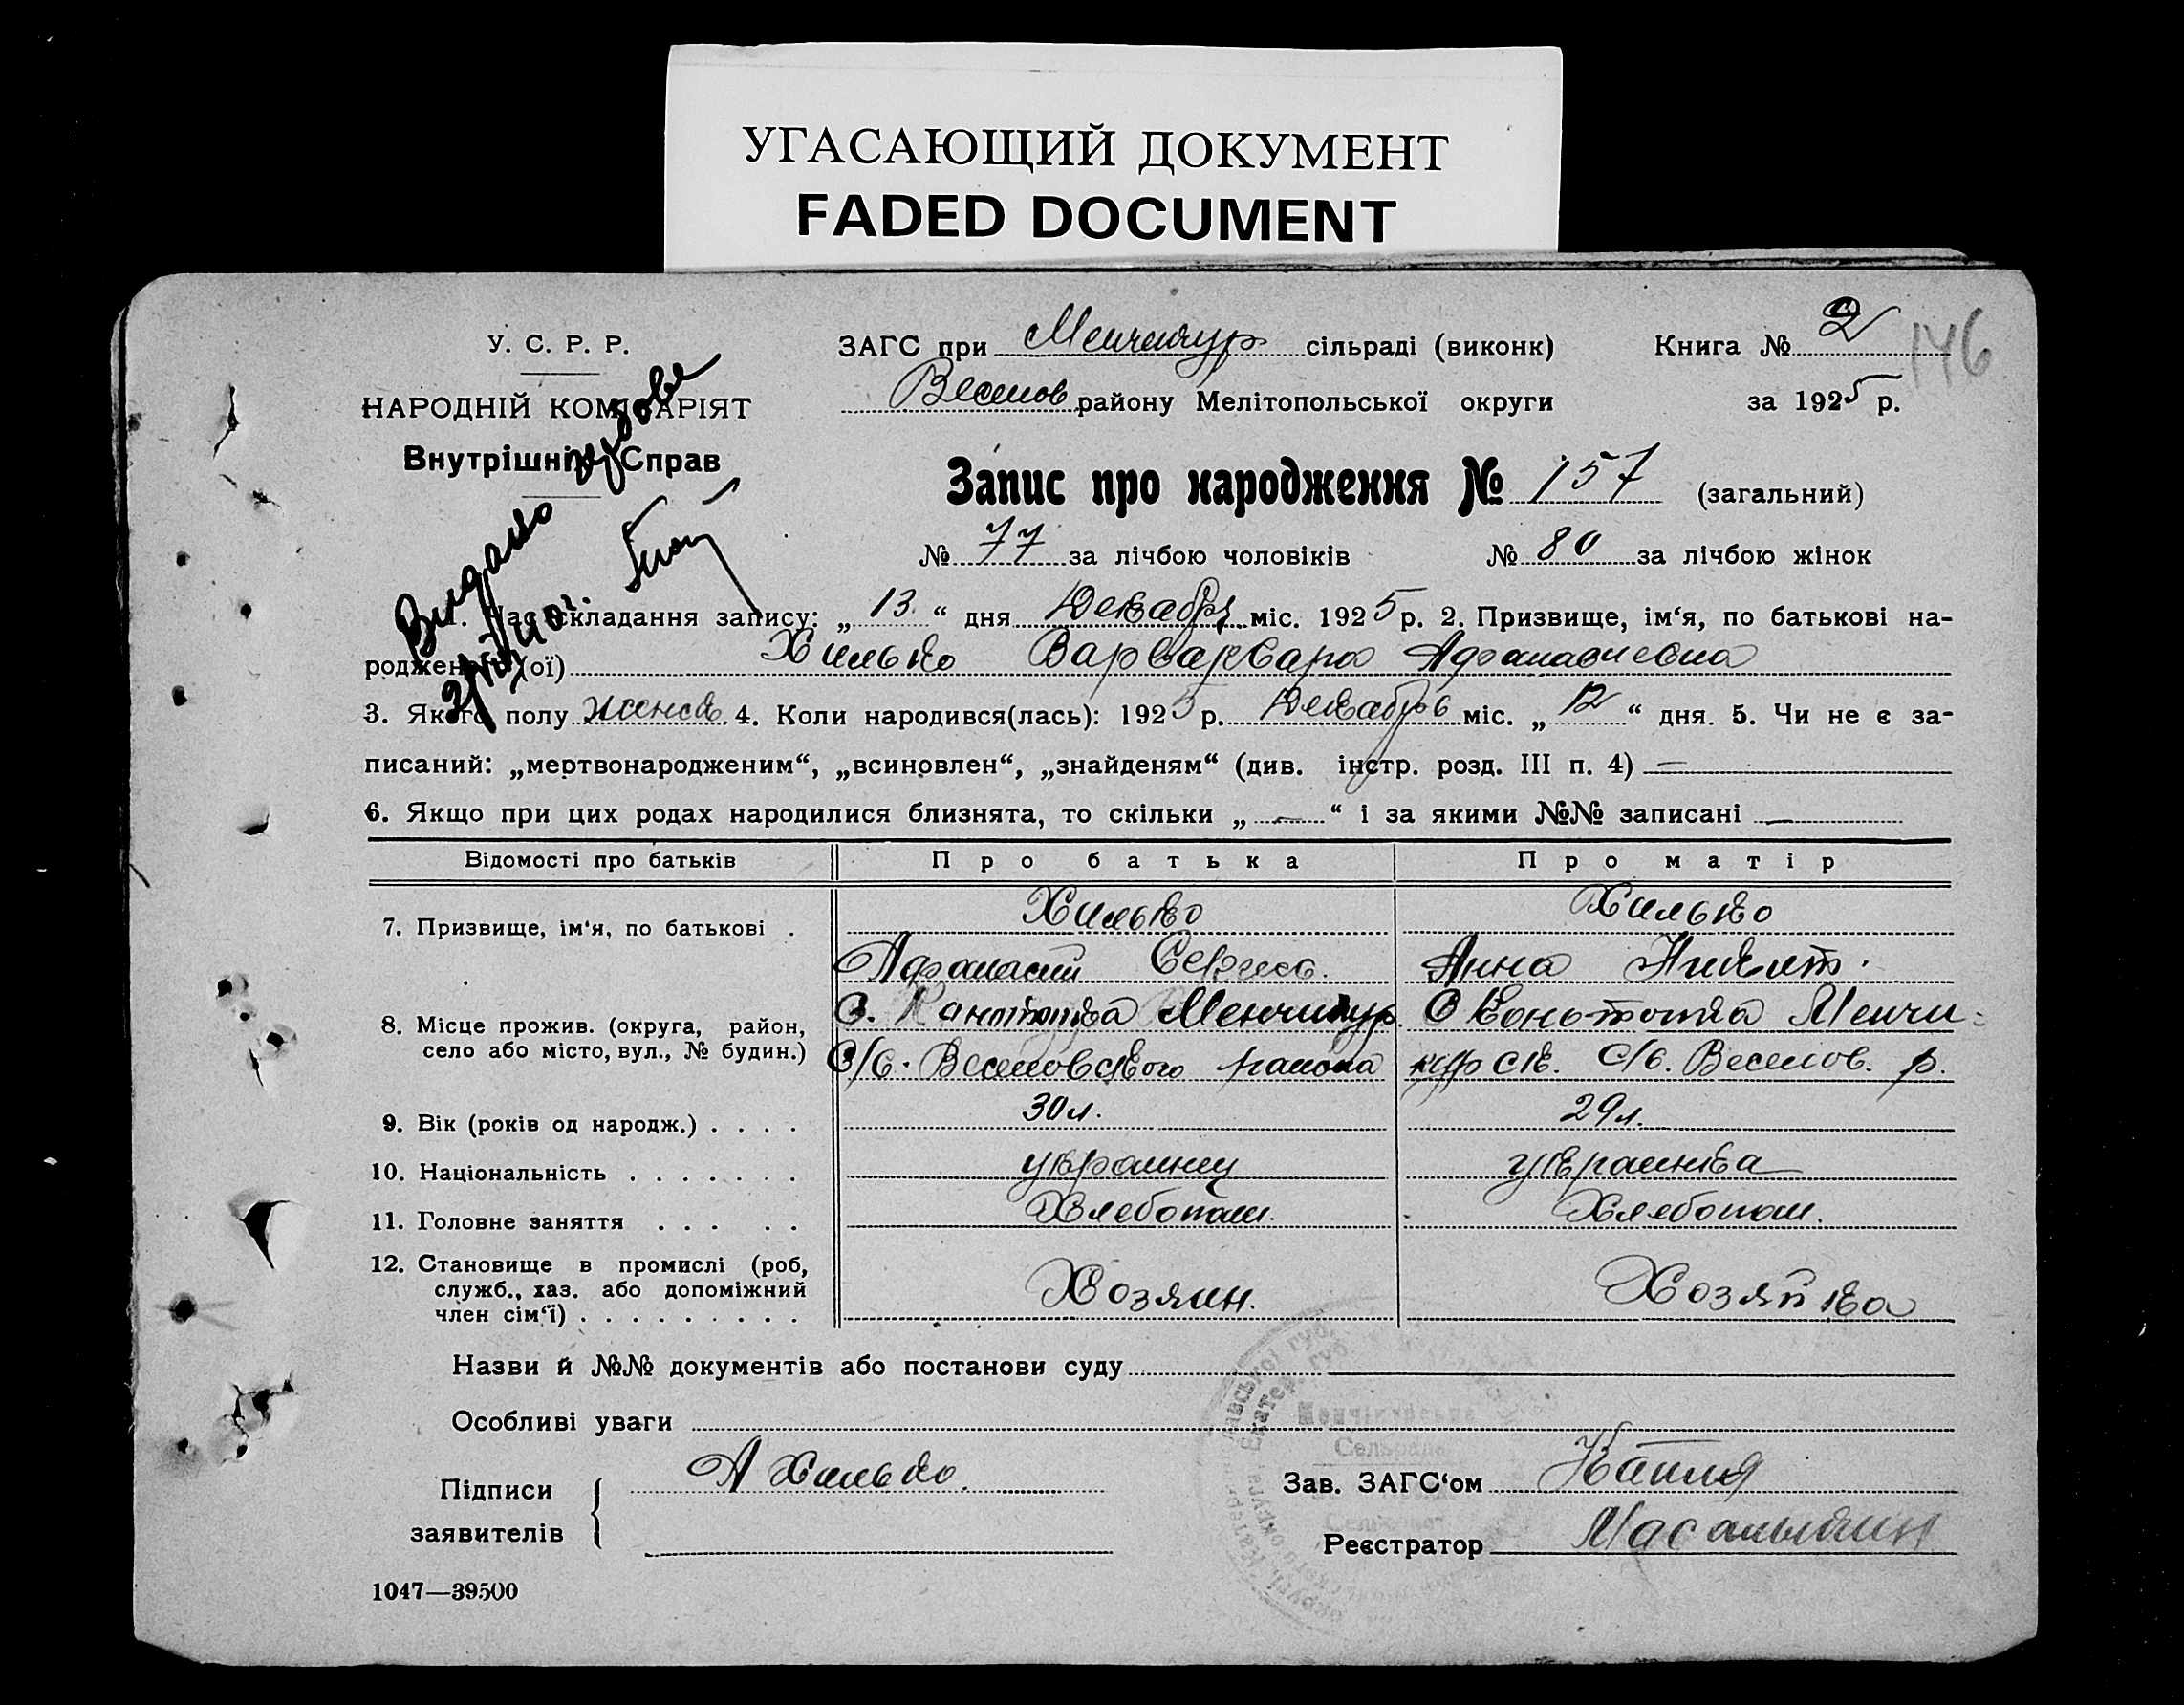 УГАСАЮЩИЙ ДОКУМЕНТ
FADED DOCUMENT
У. С. Р. Р.
НАРОДНІЙ КОМІСАРІЯТ
Внутрішніх Справ
Видано
ЗАГС при Менчикур сільраді (виконк)
Веселов району Мелітопольської округи
Книга № 2
146
за 1925 р.
Запис про народження № 157 (загальний)
№ 77 за лічбою чоловіків № 80 за лічбою жінок
1. Час складання запису: „ 13 “ дня Декабря міс. 1925 р. 2. Призвище, ім‘я, по батькові на-
родженого (ої) Хилько Варвара Афанасиевна
3. Якого полу женск. 4. Коли народився(лась): 1925 р. Декабря міс. „ 12 “ дня. 5. Чи не є за-
писаний: „мертвонародженим“, „всиновлен“, „знайденям“ (див. інстр. розд. III п. 4) —
6. Якщо при цих родах народилися близнята, то скільки „ — “ і за якими №№ записані —
Відомості про батьків Про батька Про матір
7. Призвище, ім‘я, по батькові . Хилько Хилько
Афанасий Сергеев. Анна Никит.
8. Місце прожив. (округа, район, село або місто, вул., № будин.)
Менчикур. С/С. Веселовского района
Менчикурск. С/С. Веселов. р.
9. Вік (років од народж.) . . . . 30 л. 29 л.
10. Національність . . . . . . . украинец украинка
11. Головне заняття . . . . . Хлебопаш. Хлебопаш.
12. Становище в промислі (роб, служб., хаз. або допоміжний член сім‘ї) . . . . . . . . . Хозяин. Хозяйка
Назви й №№ документів або постанови суду
Особливі уваги
Підписи заявителів А Хилько.
Зав. ЗАГС‘ом
Реєстратор
1047—39500